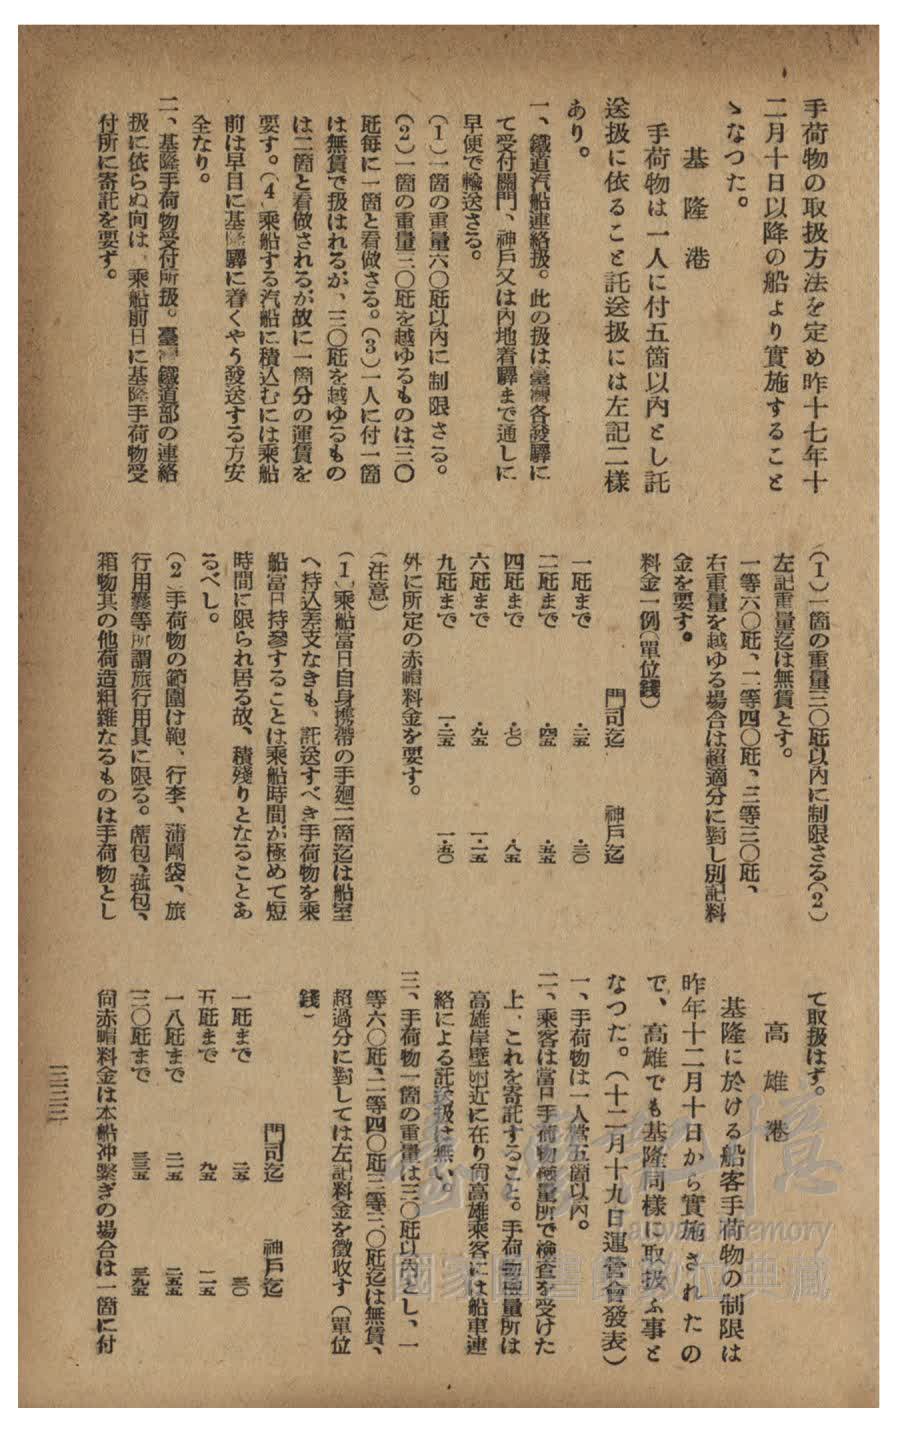 手荷物の取扱方法を定め昨十七年十
二月十日以降の船より實施すること
ゝなつた。
基隆港
手荷物は一人に付五箇以內とし託
送扱に依ること託送扱には左記二樣
あり。
一、鐵道汽船連絡扱。此の扱は臺灣各發驛に
て受付關門、神戶又は內地着驛まで通しに
早便で輸送さる。
(1)一箇の重量六〇瓩以內に制限さる。
(2)一箇の重量三〇瓩を越ゆるものは三〇
瓩每に一箇と看做さる。(3)一人に付一箇
は無賃で扱はれるが、三〇瓩を越ゆるもの
は二箇と看做されるが故に一箇分の運賃を
要す。(4)乘船する汽船に積込むには乘船
前は早目に基隆驛に着くやう發送する方安
全なり。
二、基隆手荷物受付所扱。臺灣鐵道部の連絡
扱に依らぬ向は、乘船前日に基隆手荷物受
付所に寄託を要す。
(1)一箇の重量三〇瓩以內に制限さる(2)
左記重量迄は無賃とす。
一等六〇瓩、二等四〇瓩、三等三〇瓩、
右重量を越ゆる場合は超適分に對し別記料
金を要す。
料金一例(單位錢)
門司迄 神戶迄
一瓩まで ・二五 ・三〇
二瓩まで ・四五 ・五五
四瓩まで ・七〇 ・八五
六瓩まで ・九五 一・一五
九瓩まで 一・二五 一・五〇
外に所定の赤帽料金を要す。
(注意)
(1)乘船當日自身攜帶の手廻二箇迄は船室
へ持込差支なきも、託送すべき手荷物を乘
船當日持參することは乘船時間が極めて短
時間に限られ居る故、積殘りとなることあ
るべし。
(2)手荷物の範圍は鞄、行李、蒲團袋、旅
行用囊等所謂旅行用具に限る。蓆包、菰包、
箱物其の他荷造粗雜なるものは手荷物とし
て取扱はず。
高雄港
基隆に於ける船客手荷物の制限は
昨年十二月十日から實施されたの
で、高雄でも基隆同樣に取扱ふ事と
なつた。(十二月十九日運營會發表)
一、手荷物は一人當五箇以內。
二、乘客は當日手荷物檢量所で檢査を受けた
上、これを寄託すること。手荷物檢量所は
高雄岸壁附近に在り尙高雄乘客には船車連
絡による託送扱は無い。
三、手荷物一箇の重量は三〇瓩以內とし、一
等六〇瓩、二等四〇瓩三等三〇瓩迄は無賃、
超過分に對しては左記料金を徵收す(單位
錢)
門司迄 神戶迄
一瓩まで 二五 三〇
五瓩まで 九五 一一五
一八瓩まで 二一五 二五五
三〇瓩まで 三三五 三九五
尙赤帽料金は本船沖繫ぎの場合は一箇に付
三三三
臺灣記憶
Taiwan Memory
國家圖書館數位典藏